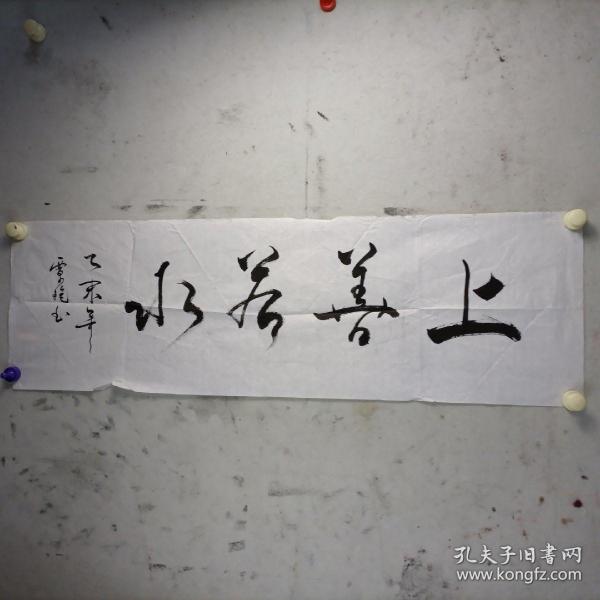 上善若水
乙未年
孔夫子旧书网
www.kongfz.com